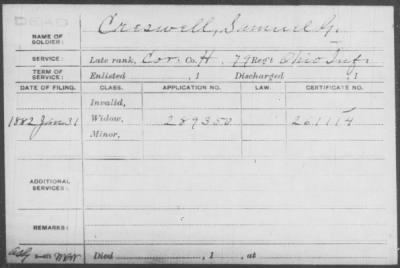 DEAD
NAME OF SOLDIER: Creswell, Samuel G.
SERVICE: Late rank, Cor. Co. H, 79 Reg't Ohio Inf.
TERM OF SERVICE: Enlisted , 1 Discharged , 1
DATE OF FILING. CLASS. APPLICATION NO. LAW. CERTIFICATE NO.
Invalid,
1882 Jan 31 Widow, 289350 261114
Minor,
ADDITIONAL SERVICES:
REMARKS:
Died , 1 , at